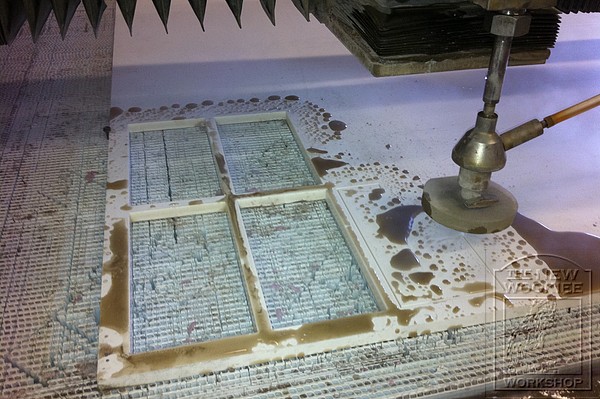 THE NEW
WORKSHOP